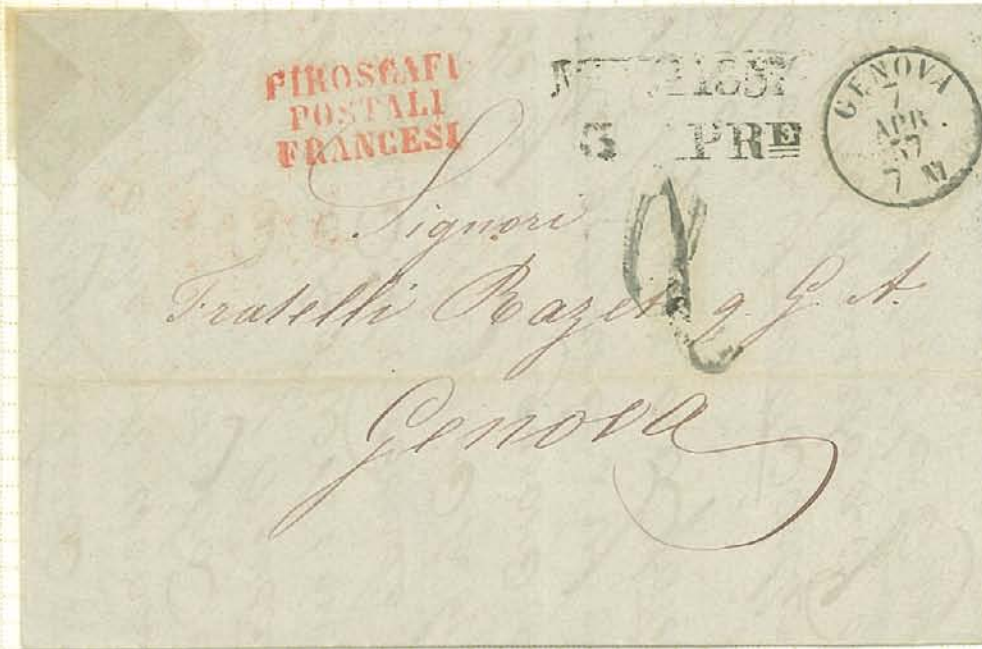 PIROSCAFI
POSTALI
FRANCESI
1857
3 APRE
GENOVA
7
APR
57
7 M
Signori
Fratelli q. G. A.
Genova